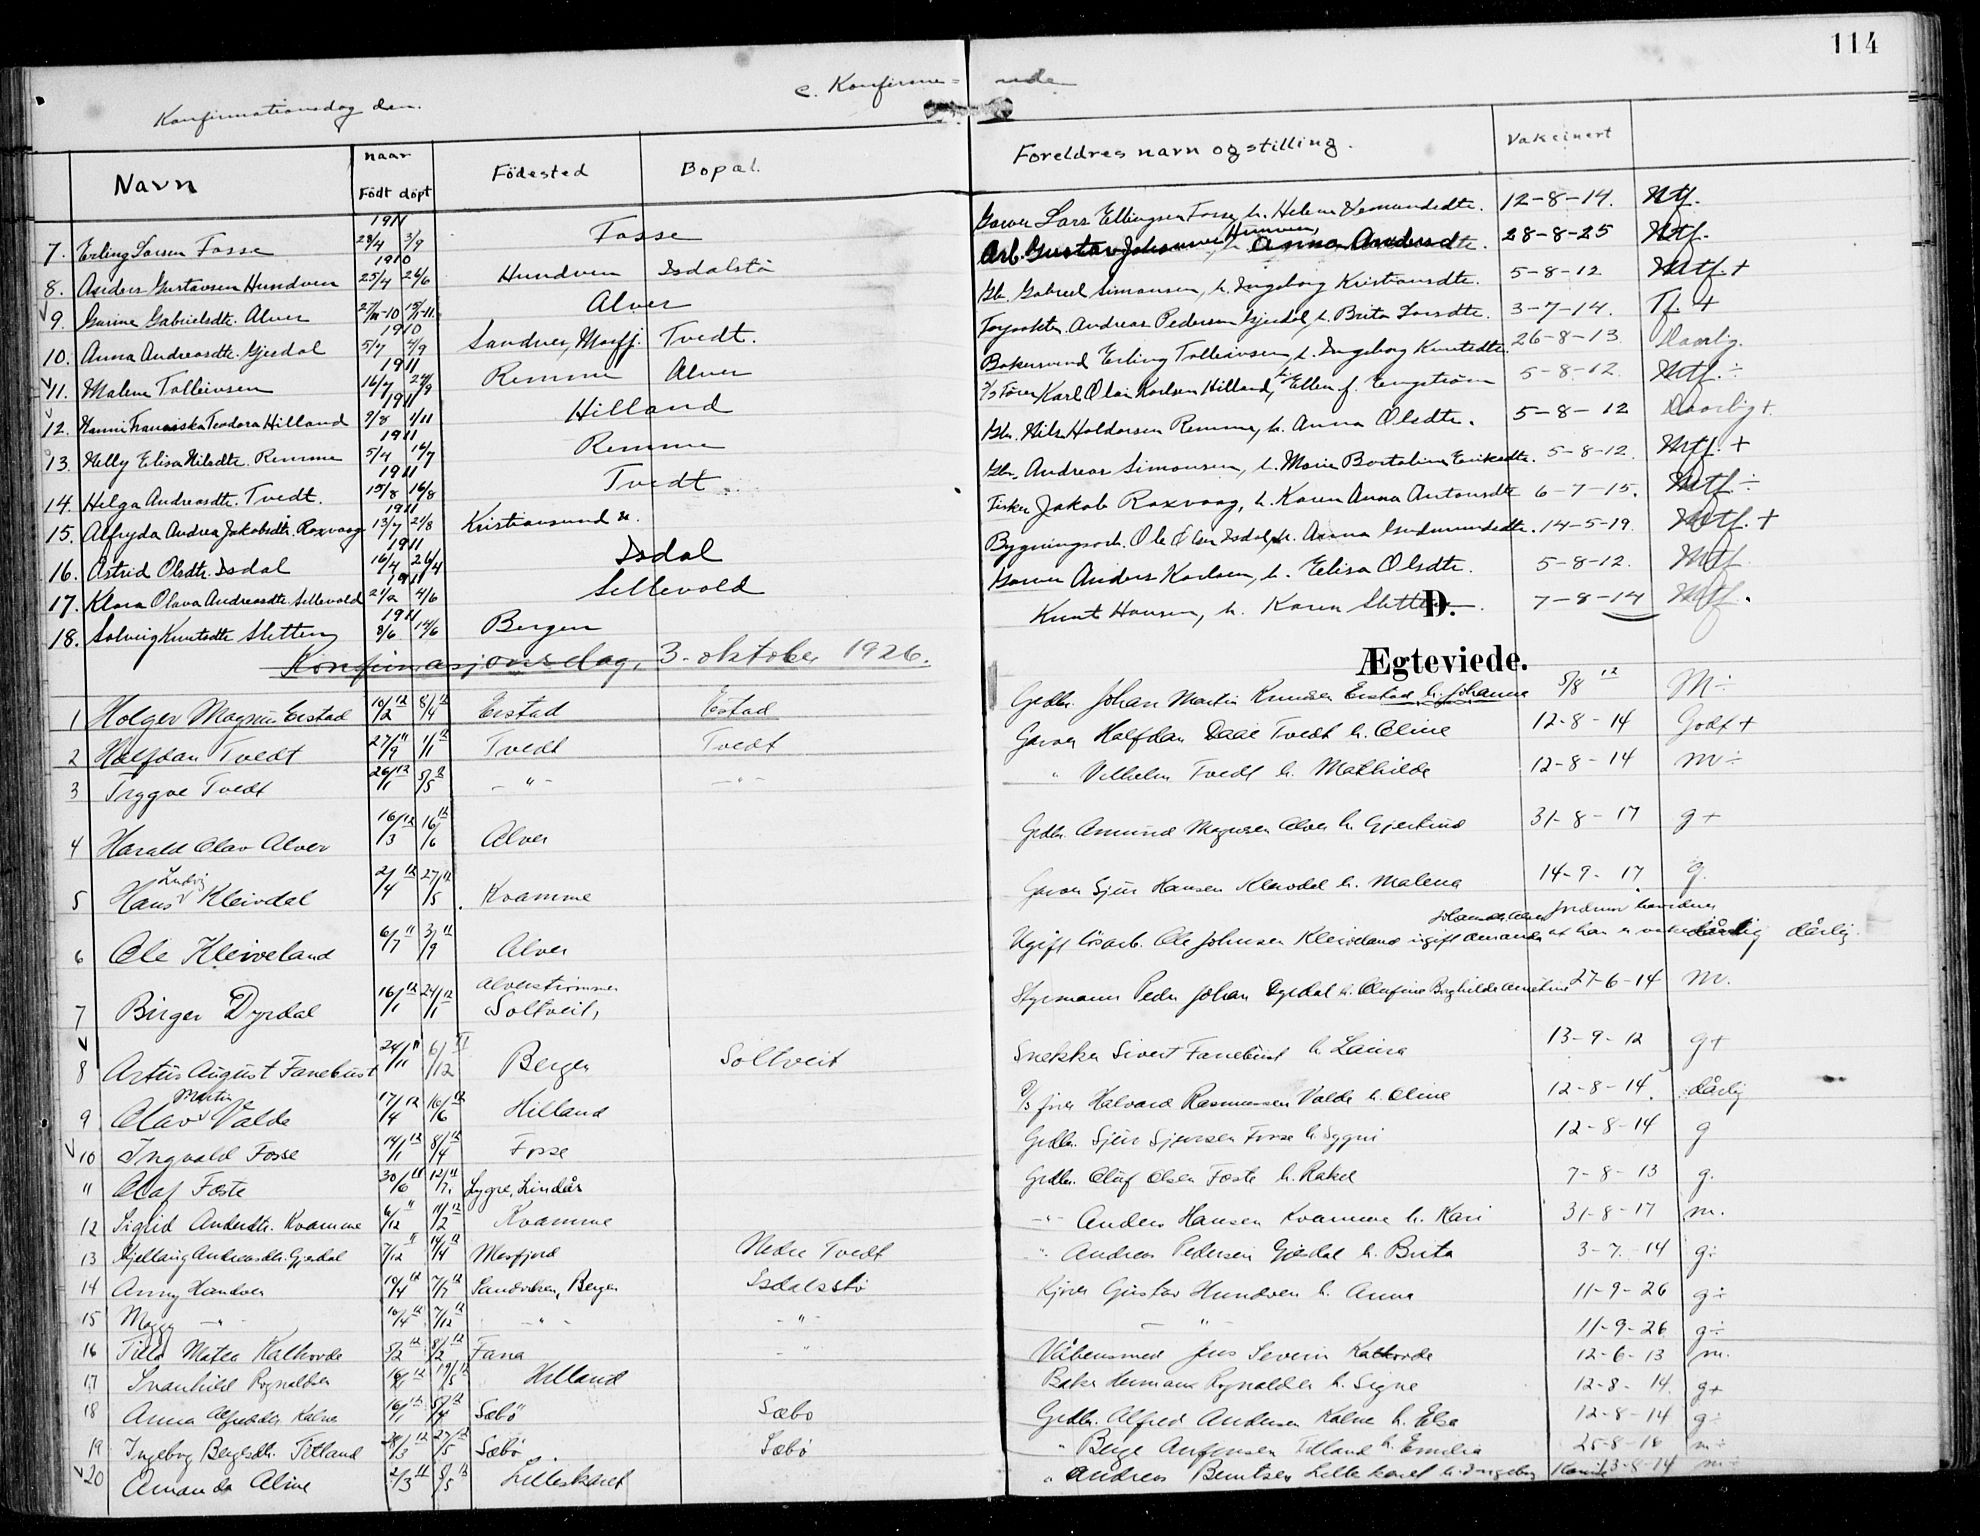 114
c. Konfirme= nde
Konfirmationsdag den.
Navn
naar
Födt döpt
Födested
Bopæl.
Foreldres navn og stilling.
Vakcinert
1911
7. Erling Larsen Fosse 29/4 3/9 Fosse
Garver Lars Ellingsen Fosse, h. Helene 12-8-14. Mtf.
1910
8. Anders Gustavsen Hundven 25/4 26/6 Hundven Isdalstö
Arb. Gustav Johannes Hundven, h. Anna Andersdtr. 28-8-25 Mtf.
9. Gurine Gabrielsdtr. Alver Alver
Gbr. Gabriel Simonsen, h. Ingeborg Kristiansdtr. 5-8-12 Mtf. +
1910
10. Anna Andreasdtr. Gjesdal 5/7 4/9 Sandnes, Masfj. Tvedt.
Andreas Pedersen Gjesdal, h. Brita Larsdtr. 3-7-14. Tf. +
1911
11. Malene Tolleivsen 16/7 24/9 Remme Alver
Bakersvend Erling Tolleivsen, h. Ingeborg Knutsdtr. 26-8-13. Daarlig.
1911
12. Hanni Franciska Teodora Hilland 9/8 1/11 Hilland
Karl Olai Karlsen Hilland, h. Ellen f. Engström 5-8-12. Mtf. ÷
1911
13. Nelly Elisa Nilsdtr. Remme 5/4 16/7 Remme
Gbr. Nils Haldorsen Remme, h. Anna Olsdtr. 5-8-12 Daarlig +.
1911
14. Helga Andreasdtr. Tvedt. 15/8 16/8 Tvedt
Gbr. Andreas Simonsen, h. Marie Bertoline Eriksdtr. 5-8-12. Mtf. +
1911
15. Alfryda Andrea Jakobsdtr. Roxvaag 13/7 21/8 Kristiansund N.
Fisker Jakob Roxvaag, h. Karen Anna Antonsdtr 6-7-15. Mtf. ÷
1911
16. Astrid Olsdtr. Isdal 16/4 26/4 Isdal
Bygningsarb. Ole Olsen Isdal, h. Anna Gudmundsdtr. 14-5-19. Mtf. +
1911
17. Klara Olava Andreasdtr. Sellevold 21/2 4/6 Sellevold
Garver Anders Karlsen, h. Elisa Olsdtr. 5-8-12. Mtf
1911
18. Solveig Knutsdtr Sletten 8/6 14/6 Bergen
Knut Hansen, h. Karen Sletten. 7-8-14 Mtf.
D.
Ægteviede.
Konfirmasjonsdag, 3. oktober 1926.
1 Holger Magnus Eistad 10/2 12 8/4 12 Eistad Eistad
Grdbr. Johan Martin Knudsen Eistad h. Johanna 5/8 12 M ÷
2 Halfdan Tvedt 27/9 11 1/1 12 Tvedt Tvedt
Garver Halfdan Daae Tvedt h. Oline 12-8-14 Godt +
3 Trygve Tvedt 26/1 12 5/5 12 - " - - " -
" Vilhelm Tvedt h. Mathilde 12-8-14 M ÷
4 Harald Olav Alver 16/3 12 16/6 Alver
Grdbr. Amund Magnusen Alver h. Gjertrud 31-8-17 g +
5 Hans Ludvig Kleivdal 2/4 12 27/5 12 Kvamme
Garver Sjur Hansen Kleivdal h. Malena 14-9-17. g.
6 Ole Kleiveland 6/7 11 3/9 11 Alver
Ugift lösarb. Ole Johnsen Kleiveland dårlig
7 Birger Dyrdal 16/1 12 24/1 12 Alverströmmen Soltveit,
Styrmann Peder Johan Dyrdal h. Olufine Borghilde 27-6-14 M.
8 Artur August Fanebust 24/11 11 6/12 11 Bergen Soltveit
Snekker Sivert Fanebust h. Laura 13-9-12 g +
9 Olav Martin Valde 17/4 12 16/6 12 Hilland
Halvard Rasmussen Valde h. Oline 12-8-14. dårlig
10 Ingvald Fosse 14/1 12 8/4 12 Fosse
Grdbr. Sjur Sjursen Fosse h. 12-8-14 g
11 Olaf Foste 30/6 11 12/7 11 Lygre, Lindås
Grdbr. Oluf Olsen Foste h. Rakel 7-8-13 g.
12 Sigrid Andersdtr. Kvamme 6/12 11 11/2 12 Kvamme
- " - Anders Hansen Kvamme h. Kari 31-8-17 m.
13 Kjellaug Andreasdtr. Gjesdal 7/12 11 14/4 12 Masfjord Nedre Tvedt
" Andreas Pedersen Gjesdal h. Brita 3-7-14 g ÷
14 Anny Handven 10/4 12 7/7 12 Sandviken, Bergen Isdalsstö
Gustav Hundven h. Anna 11-9-26 g ÷
15 - " - - " - - " -
- " - 11-9-26 g ÷
16 Tilla Matea Kalhovde 5/2 12 8/2 12 Fana - " -
Våbensmed Jens Severin Kalhovde 12-6-13 m.
17 Svanhild 19/5 12 Hilland
Baker Hermann h. Signe 12-8-14. g +
18 Anna Alfredsdtr. Kalve 16/1 12 Sæbö Sæbo
Grdbr. Alfred Andersen Kalve h. Elsa 12-8-14 g ÷
19 Ingeborg Bergesdtr. Titland 27/5 Sæbö Sæbö
" Berge Titland h. Emilia 25-8-18 m ÷
20 Amanda Aline Lilleskaret
" Andreas Berntsen Lilleskaret h. Ingeborg 13-8-14 m ÷